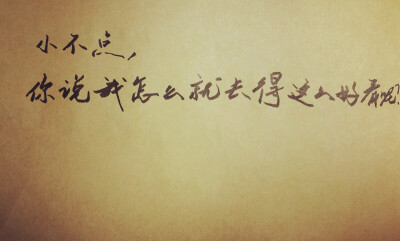 小不点,
你说我怎么就长得这么好看呢?